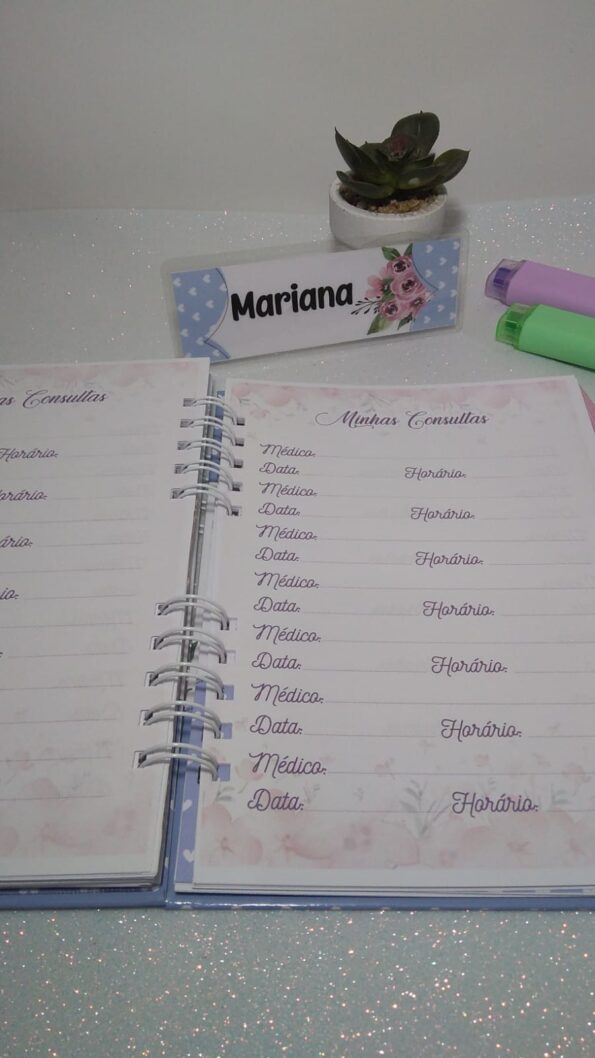 Mariana
as Consultas
Horário:
orário:
ário:
io:
Minhas Consultas
Médico:
Data: Horário:
Médico:
Data: Horário:
Médico:
Data: Horário:
Médico:
Data: Horário:
Médico:
Data: Horário:
Médico:
Data: Horário:
Médico:
Data: Horário: